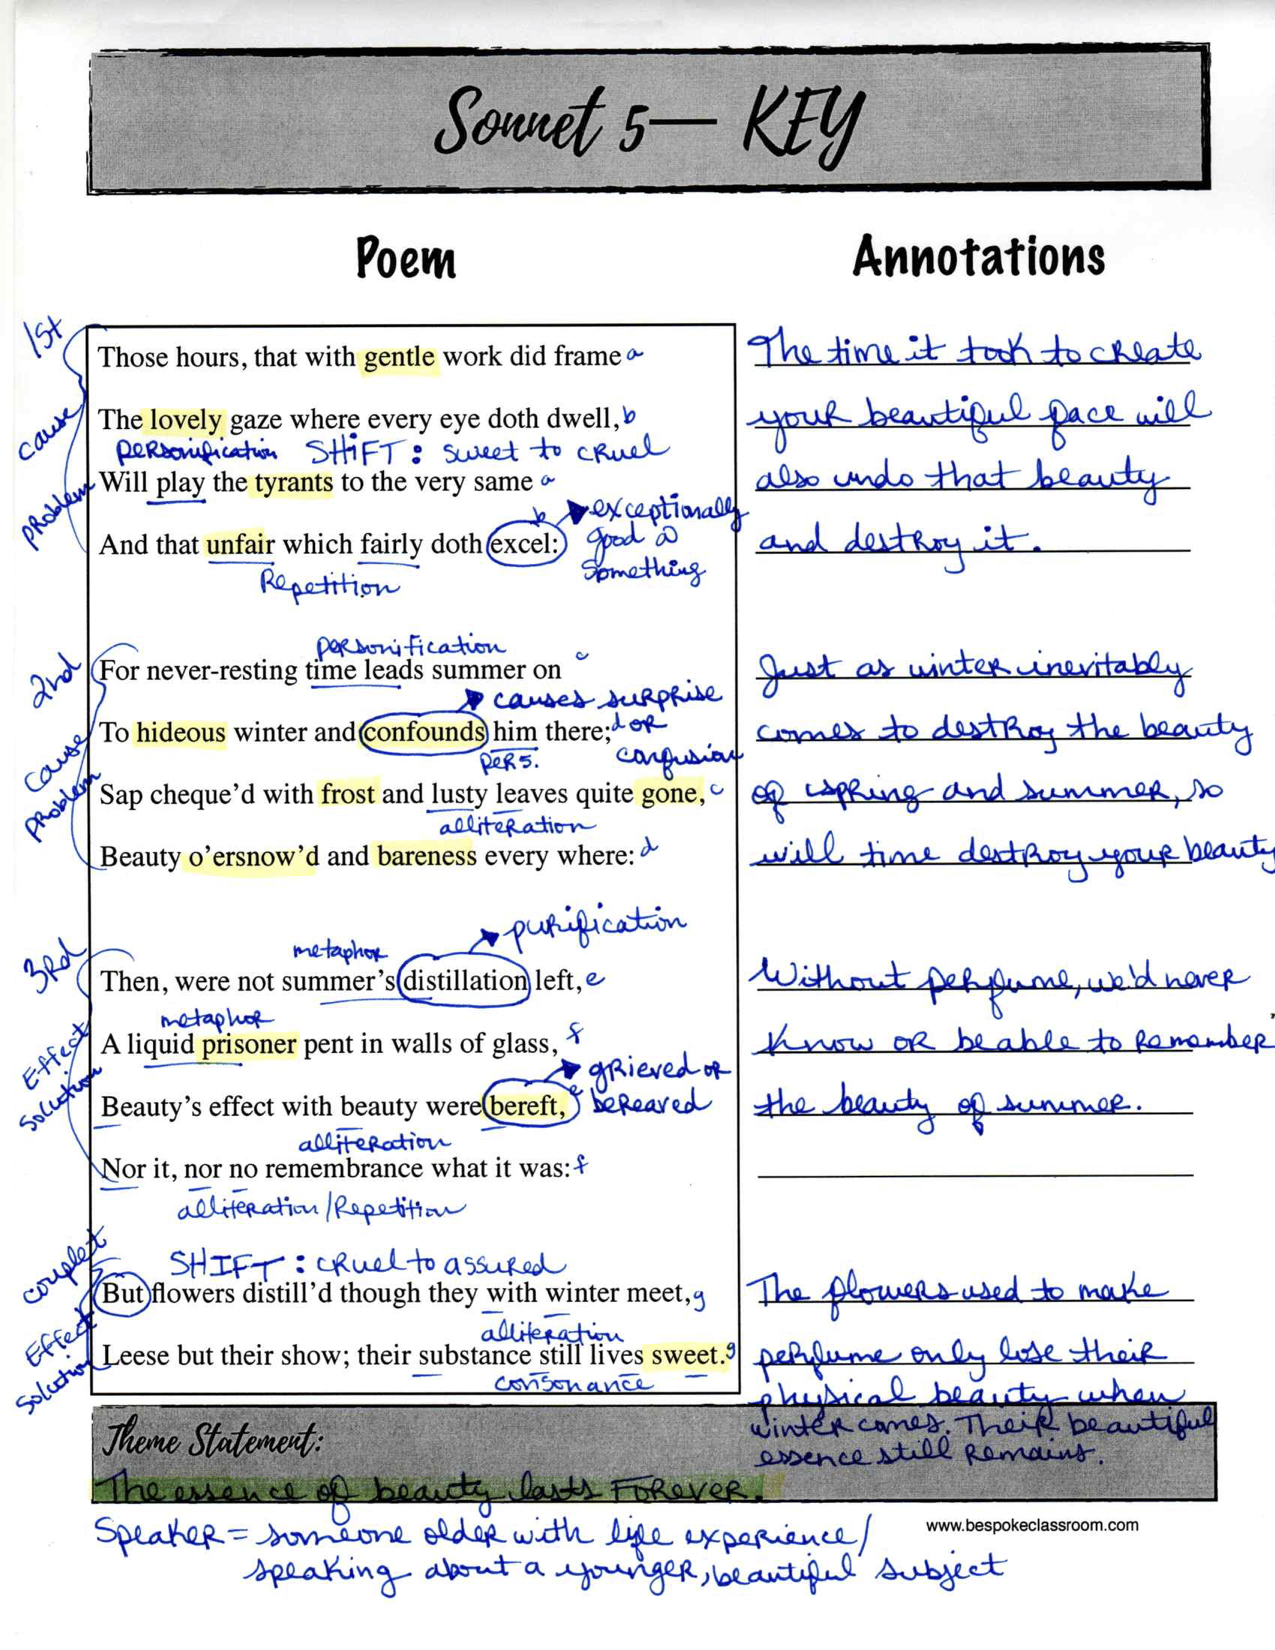 Sonnet 5— KEY
Poem
Annotations
1st
cause
problem
Those hours, that with gentle work did frame a
The lovely gaze where every eye doth dwell, b
personification SHIFT: sweet to cruel
Will play the tyrants to the very same a
And that unfair which fairly doth excel: b
exceptionally
good @
something
Repetition
The time it took to create
your beautiful face will
also undo that beauty
and destroy it.
2nd
cause
problem
personification
For never-resting time leads summer on c
causes surprise
To hideous winter and confounds him there; d
or
confusion
pers.
Sap cheque'd with frost and lusty leaves quite gone, c
alliteration
Beauty o'ersnow'd and bareness every where: d
Just as winter inevitably
comes to destroy the beauty
of spring and summer, so
will time destroy your beauty
3rd
Effect
solution
purification
metaphor
Then, were not summer's distillation left, e
metaphor
A liquid prisoner pent in walls of glass, f
grieved or
bereaved
Beauty's effect with beauty were bereft, e
alliteration
Nor it, nor no remembrance what it was: f
alliteration/Repetition
Without perfume, we'd never
know or be able to remember
the beauty of summer.
couplet
Effect
solution
SHIFT: cruel to assured
But flowers distill'd though they with winter meet, g
alliteration
Leese but their show; their substance still lives sweet. g
consonance
The flowers used to make
perfume only lose their
physical beauty when
winter comes. Their beautiful
essence still remains.
Theme Statement:
The essence of beauty lasts FOREVER.
www.bespokeclassroom.com
Speaker = someone older with life experience/
speaking about a younger, beautiful subject